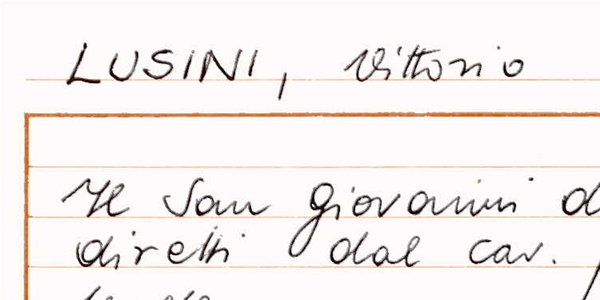 LUSINI, Vittorio
Il San Giovanni d
diretti dal cav.